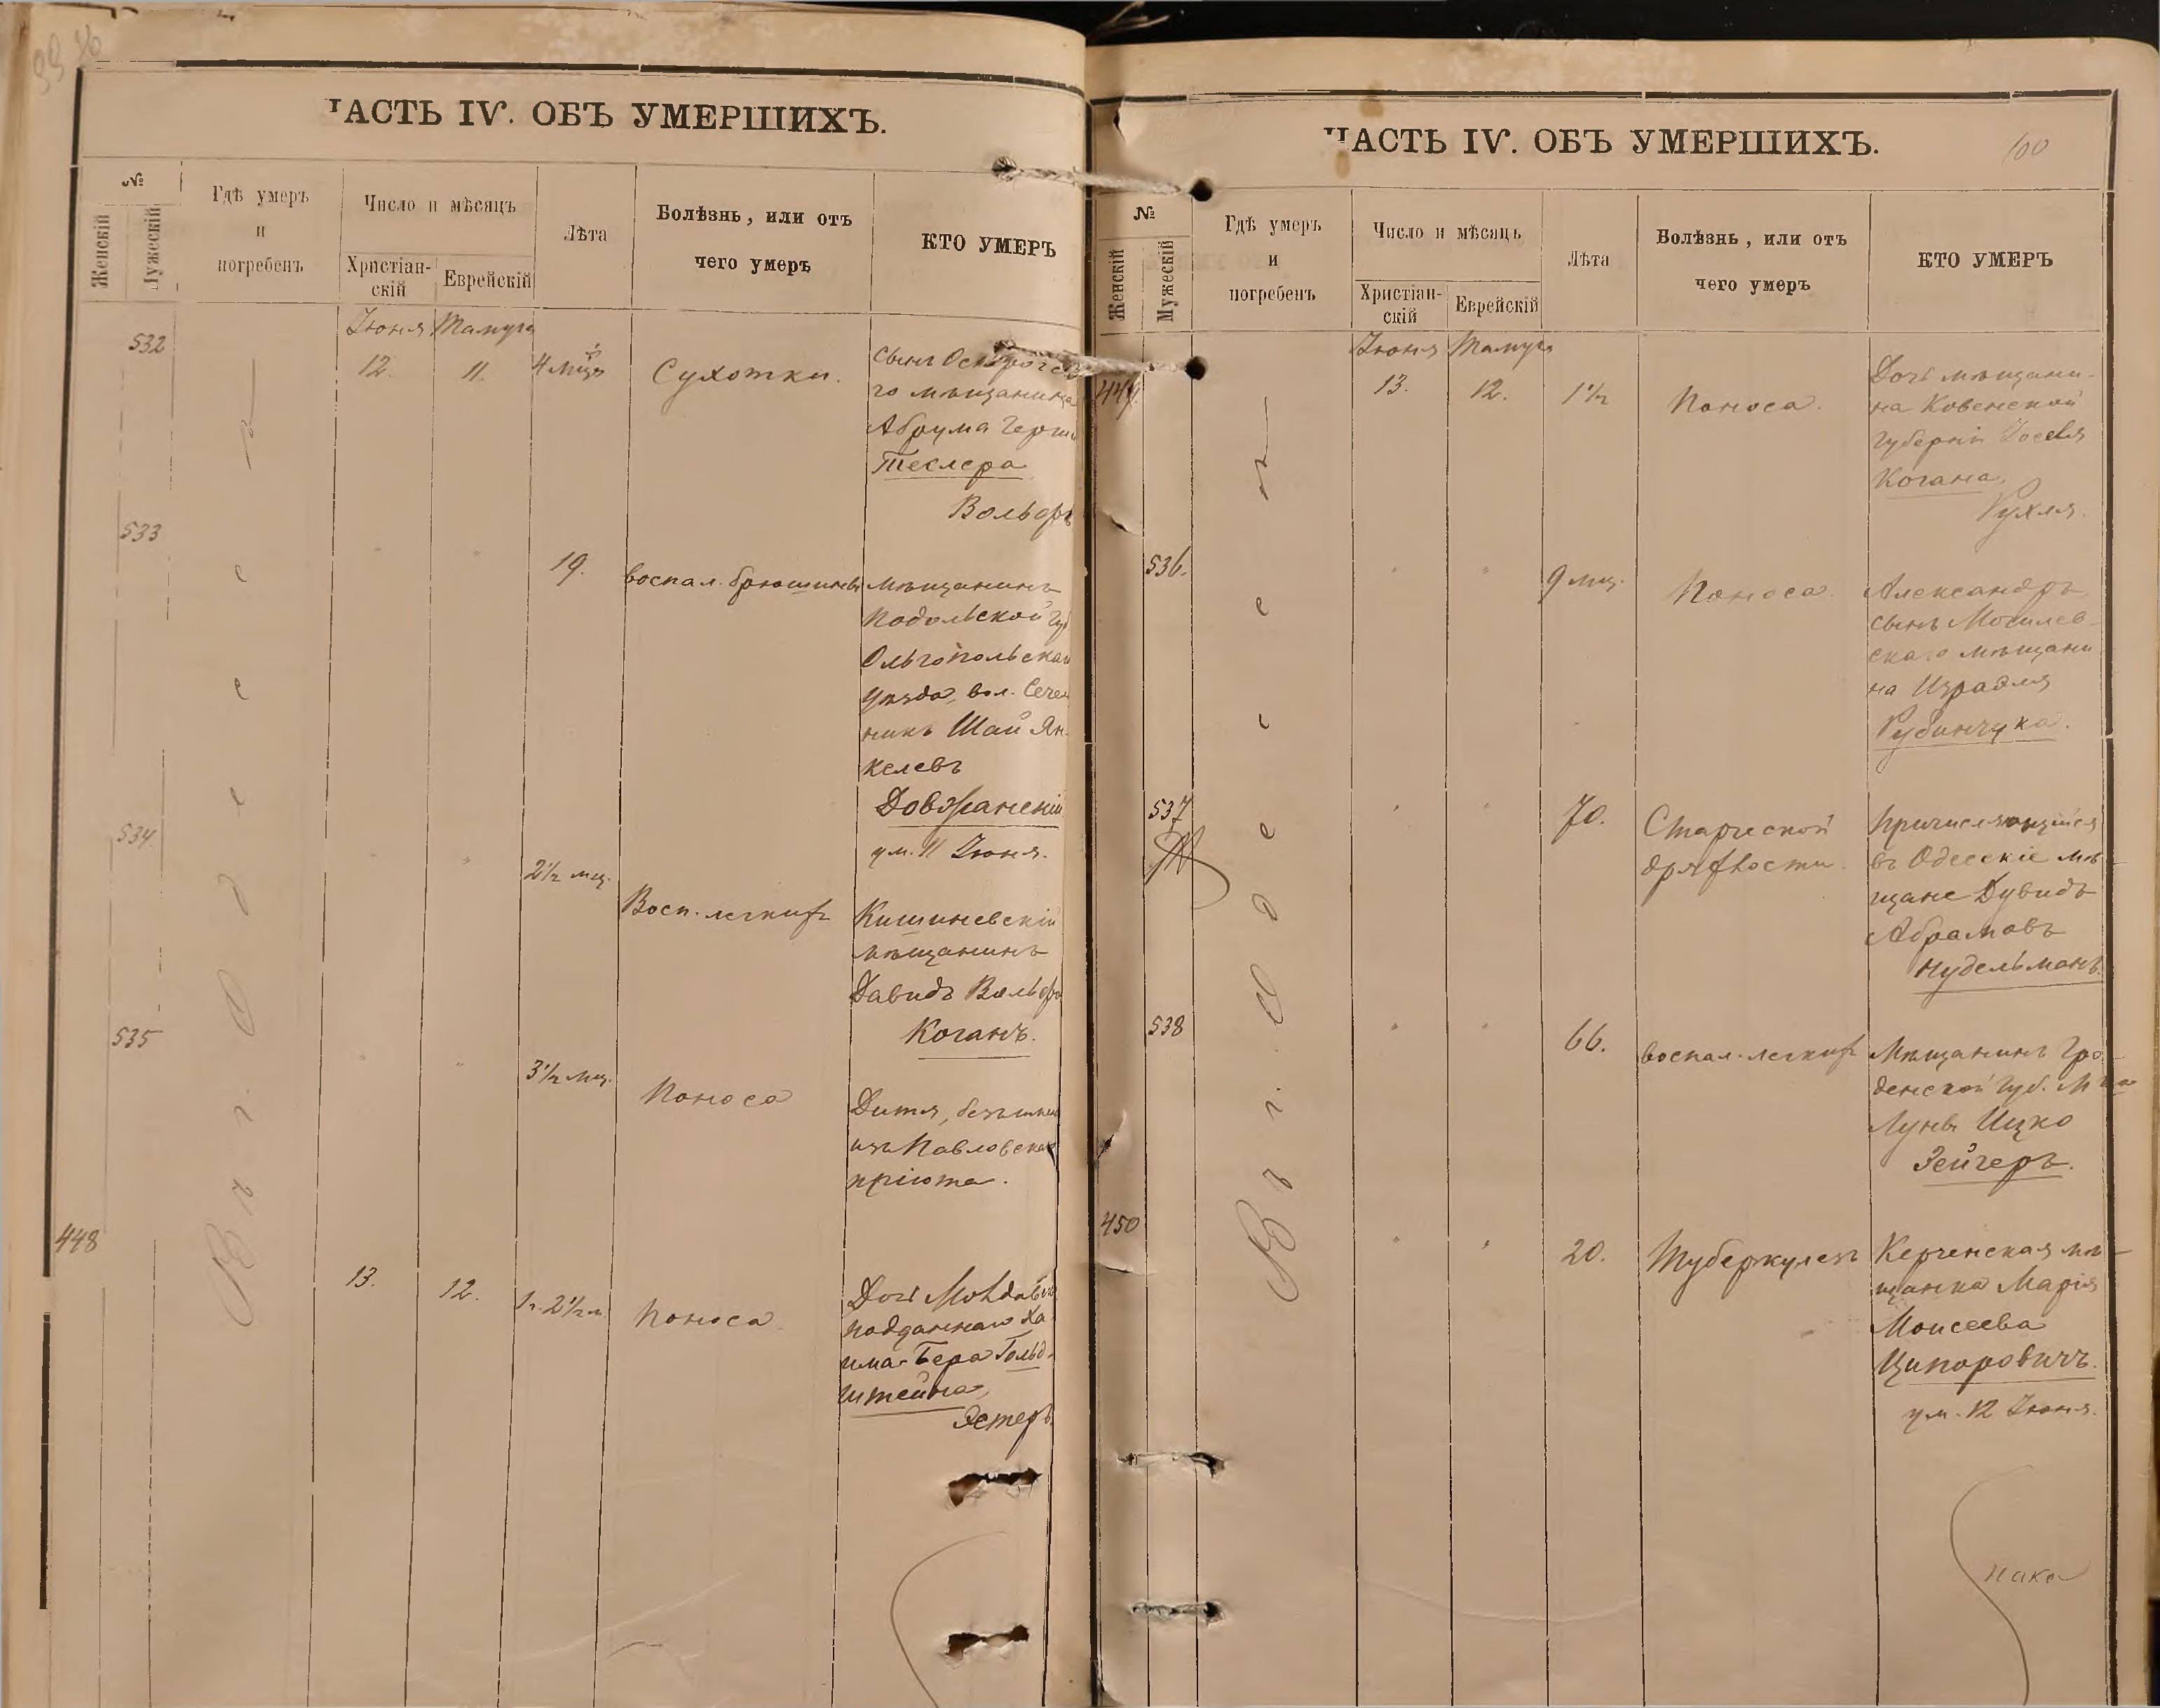 ЧАСТЬ IV. ОБЪ УМЕРШИХЪ.
№
Женскій
Мужескій
Гдѣ умеръ
и
погребенъ
Число и мѣсяцъ
Христіан-
скій
Еврейскій
Лѣта
Болѣзнь, или отъ
чего умеръ
КТО УМЕРЪ
Въ г. Одессѣ
Іюня Тамуза
532
12. 11. 4 мѣс.
Сухотки.
сынъ Острогска
го мѣщанина
Абрума Герша
Теслера
Вольфъ
533
19.
воспал. брюшины
мѣщанинъ
Подольской Губ
Ольгопольскаго
уѣзда, вол.
Шай Ян-
келевъ
Довжанскій
ум. 11 Іюня.
534
2½ мц.
Восп. легкихъ
Кишиневскій
мѣщанинъ
Давидъ Вольфъ
Коганъ.
535
3½ мц.
Поноса
Дитя, безъ имени
изъ Павловскаго
пріюта.
448
13. 12. 1 г. 2½ м.
Поноса
Дочь Молдавск
подданнаго Ха
има-Бера Гольд-
штейна,
Эстеръ.
ЧАСТЬ IV. ОБЪ УМЕРШИХЪ.
100
№
Женскій
Мужескій
Гдѣ умеръ
и
погребенъ
Число и мѣсяцъ
Христіан-
скій
Еврейскій
Лѣта
Болѣзнь, или отъ
чего умеръ
КТО УМЕРЪ
Въ г. Одессѣ
Іюня Тамуза
449.
13. 12. 1½
Поноса.
Дочь мѣщани-
на Ковенской
губерніи Іоселя
Когана,
Рухля.
536.
9 мц.
Поноса.
Александръ
сынъ Могилев-
скаго мѣщани
на Израиля
Рубинчука.
537
70.
Старческой
дряхлости.
Причисляющійся
въ Одесскіе мѣ-
щане Дувидъ
Абрамовъ
Нудельманъ.
538
66.
воспал. легкихъ
Мѣщанинъ Гро-
денской Губ. М-ка
Луны Ицко
Зейгеръ.
450
20.
Туберкулезъ
Керченская мѣ-
щанка Марія
Моисеева
Ципоровичъ.
ум. 12 Іюня.